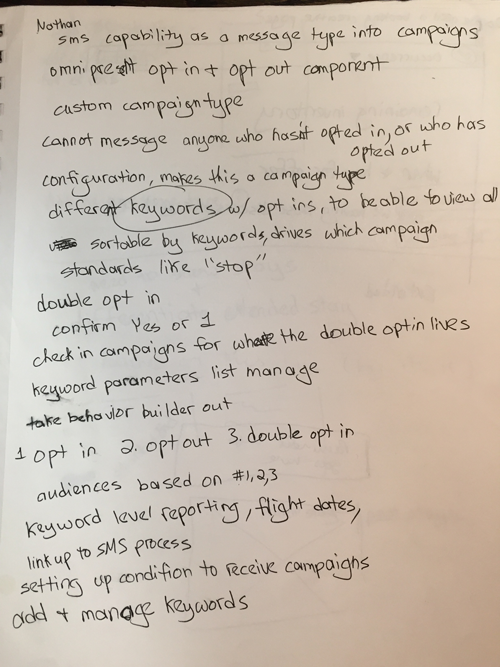 Nathan
sms capability as a message type into campaigns
omnipresent opt in + opt out component
custom campaign type
cannot message anyone who hasn't opted in, or who has
opted out
configuration, makes this a campaign type
different keywords w/ opt ins, to be able to view all
sortable by keywords, drives which campaign
standards like "stop"
double opt in
confirm Yes or 1
check in campaigns for where the double optin lives
keyword parameters list manage
take behavior builder out
1 opt in 2. opt out 3. double opt in
audiences based on #1,2,3
keyword level reporting, flight dates,
link up to SMS process
setting up condition to receive campaigns
add + manage keywords